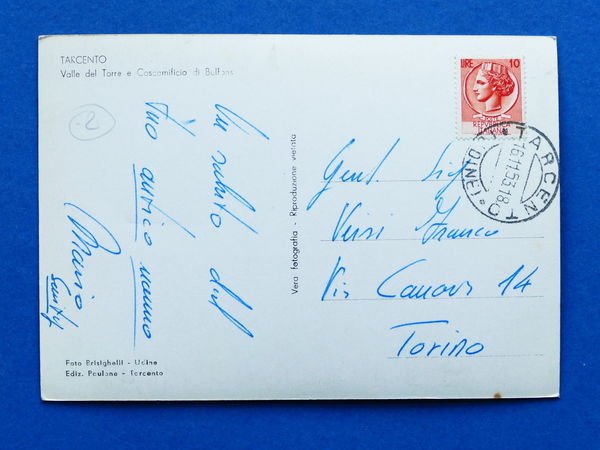 TARCENTO
Valle del Torre e Cascamificio di Bulfons
2
Un saluto dal
tuo antico nonno
Mario
Vera fotografia - Riproduzione vietata
LIRE 10
POSTE
REPUBBLICA
ITALIANA
TARCENTO
16.11.53.18
Gent. Sig.
Franco
Via Canova 14
Torino
Foto Brisighelli - Udine
Ediz. Paulone - Tarcento